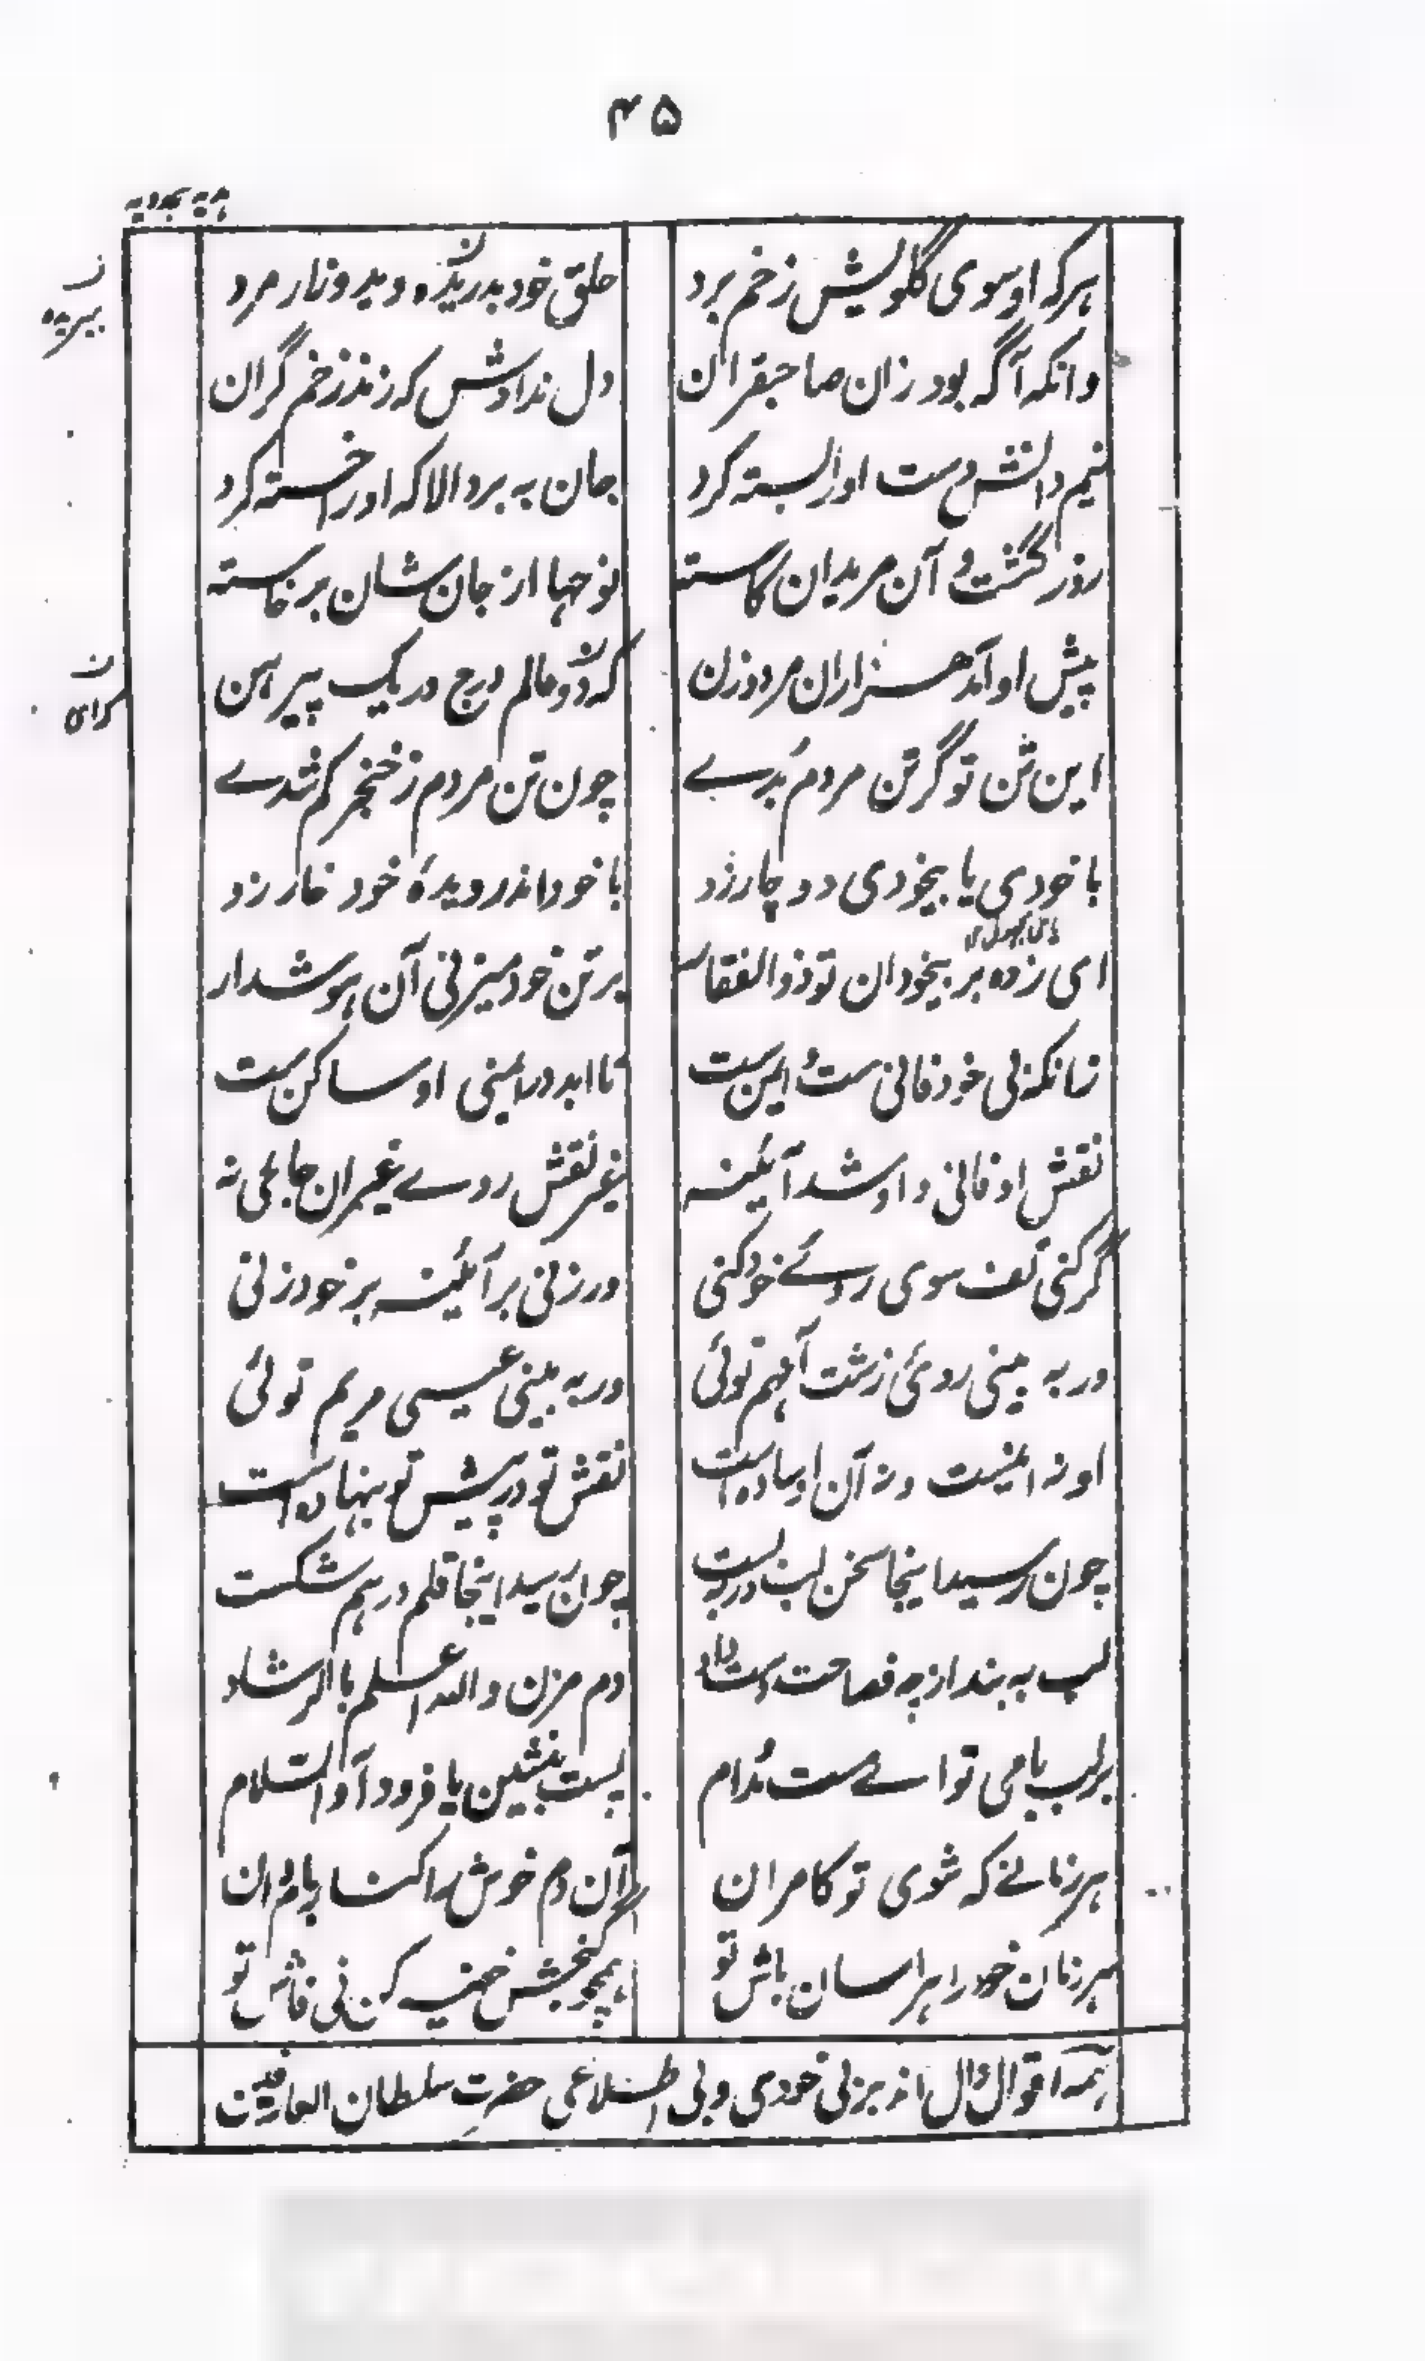 ۴۵
ہدیہ مجددیہ
هرکه او سوی گلویش زخم برد حلق خود بدریده دید و زار مرد
ن
ببریده
وانکه آگه بود زان صاحبقران دل ندادش که زند زخم گران
نیم دانش دست اورا بسته کرد جان به برد الا که اورا خسته کرد
روز گشت و آن مریدان کاسته نوحها از جان شان بر خاسته
پیش او آمد هزاران مرد و زن که دو عالم درج در یک پیرهن
ن
کای
این تن تو گر تن مردم بدے چون تن مردم ز خنجر کم شدے
با خودی یا بیخودی دو چار زد با خود اندر دیدهٔ خود خار زد
ای زده بر بیخودان تو ذوالفقار بر تن خود میزنی آن هوشدار
زانکه بی خود فانی ست و ایمن ست تا ابد در ایمنی او ساکن ست
نقش او فانی و او شد آئینه غیر نقش روے غیر آن جای نه
گر کنی تف سوی روئے خود کنی ور زنی بر آئینه بر خود زنی
ور به بینی روئ زشت آنهم توئی ور به بینی عیسی مریم توئی
او نه اینست و نه آن او ساده است نقش تو در پیش تو بنهاده است
چون رسید اینجا سخن لب در ببست چون رسید اینجا قلم در هم شکست
لب به بند ار چه فصاحت دست داد دم مزن والله اعلم بالرشاد
بر لب بامی تو اے مست مدام پست بنشین یا فرود آ والسلام
هر زمانے که شوی تو کامران آن دم خوش را کنار بام دان
هر زمان خود را هراسان باش تو همچو گنجش خفیه کن نی فاش تو
همه اقوال دال اند بر بی خودی و بی اطلاعی حضرت سلطان العارفین